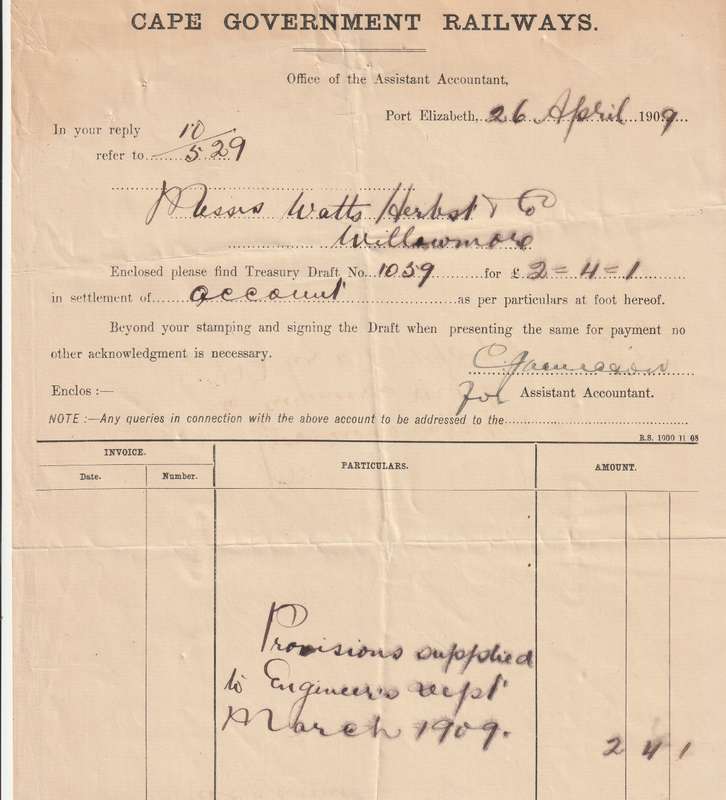 CAPE GOVERNMENT RAILWAYS.
Office of the Assistant Accountant,
Port Elizabeth, 26 April 1909
In your reply 10/
refer to 529
Messrs Watts Herbst & Co
Willowmore
Enclosed please find Treasury Draft No. 1059 for £ 2=4=1
in settlement of account as per particulars at foot hereof.
Beyond your stamping and signing the Draft when presenting the same for payment no
other acknowledgment is necessary.
C. Jamieson
Enclos :— for Assistant Accountant.
NOTE :—Any queries in connection with the above account to be addressed to the
R.S. 1000 11 08
INVOICE. PARTICULARS. AMOUNT.
Date. Number.
Provisions supplied
to Engineer's Dept
March 1909. 2 4 1